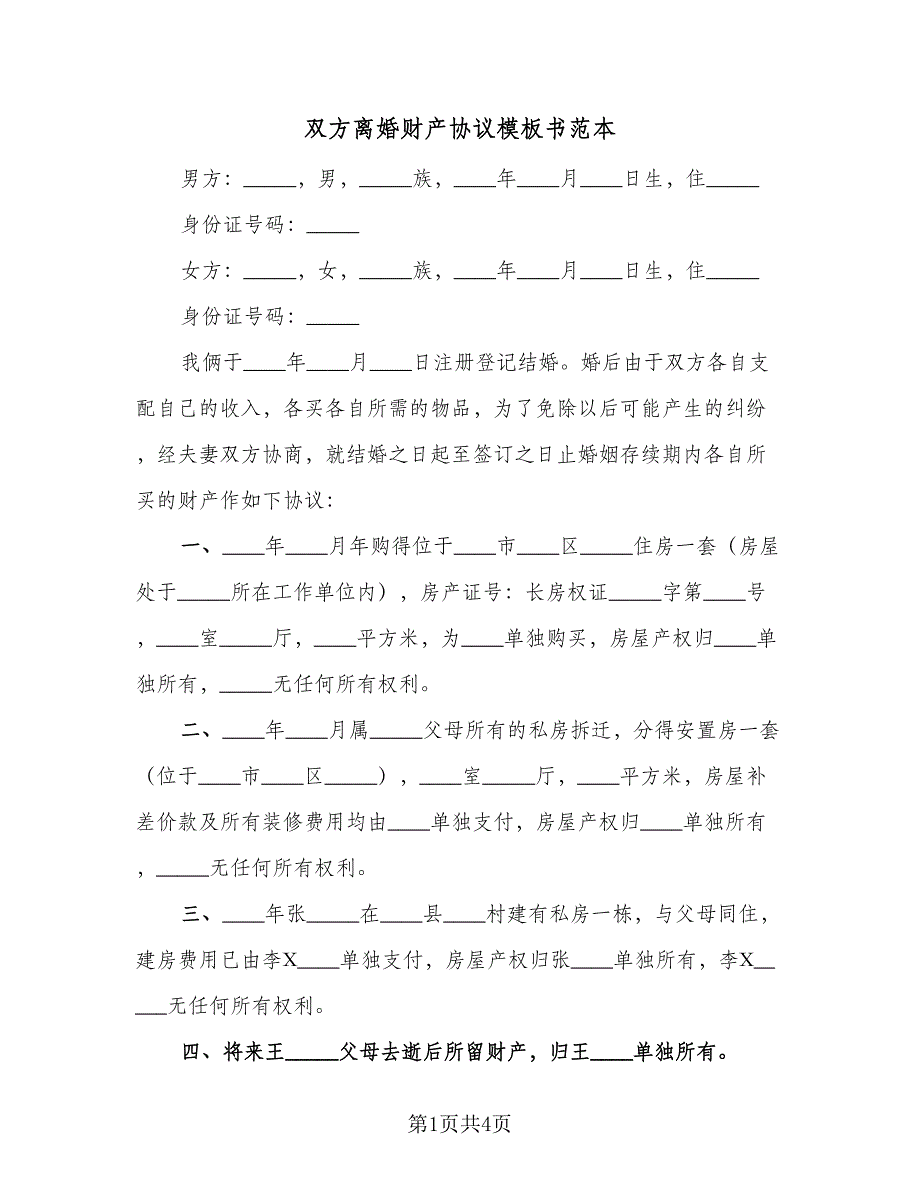 双方离婚财产协议模板书范本
男方：_____，男，_____族，____年____月____日生，住_____
身份证号码：_____
女方：_____，女，_____族，____年____月____日生，住_____
身份证号码：_____
我俩于____年____月____日注册登记结婚。婚后由于双方各自支
配自己的收入，各买各自所需的物品，为了免除以后可能产生的纠纷
，经夫妻双方协商，就结婚之日起至签订之日止婚姻存续期内各自所
买的财产作如下协议：
一、____年____月年购得位于____市____区_____住房一套（房屋
处于_____所在工作单位内），房产证号：长房权证_____字第____号
，____室_____厅，____平方米，为____单独购买，房屋产权归____单
独所有，_____无任何所有权利。
二、____年____月属_____父母所有的私房拆迁，分得安置房一套
（位于____市____区_____），____室_____厅，____平方米，房屋补
差价款及所有装修费用均由____单独支付，房屋产权归____单独所有
，_____无任何所有权利。
三、____年张_____在____县____村建有私房一栋，与父母同住，
建房费用已由李X____单独支付，房屋产权归张____单独所有，李X__
___无任何所有权利。
四、将来王_____父母去逝后所留财产，归王____单独所有。
第1页共4页